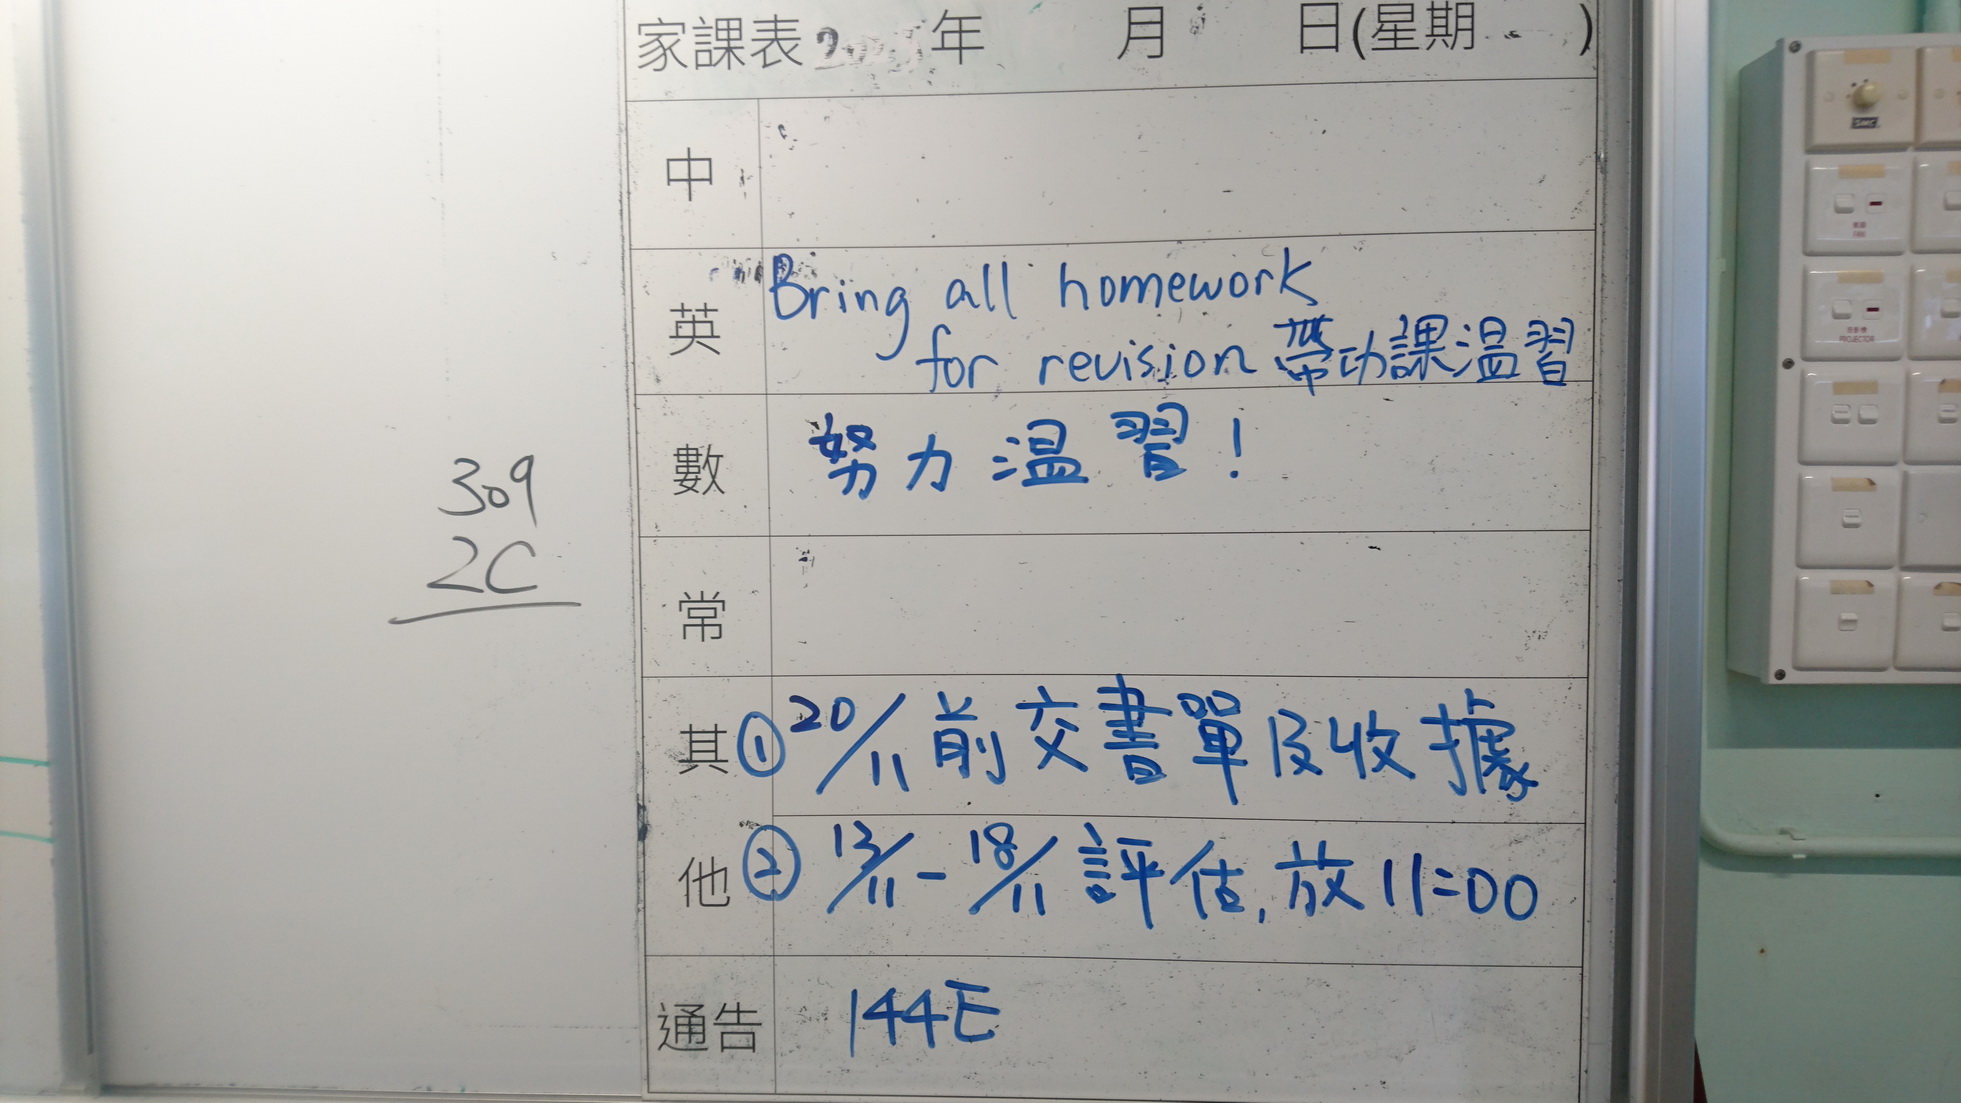 家課表 年 月 日(星期 )
中
英 Bring all homework
for revision 帶功課温習
數 努力温習!
常
其他
① 20/11 前交書單及收據
② 13/11 - 18/11 評估, 放 11:00
通告 144E
309
2C
SMC
FAN
PROJECTOR